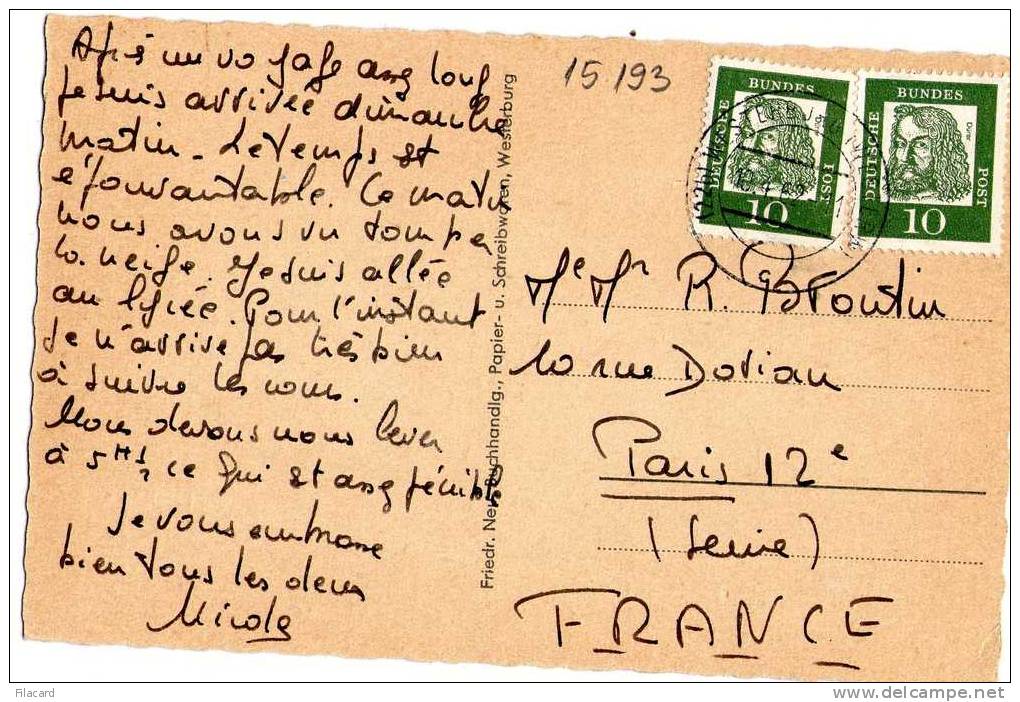 Après un voyage assez long
je suis arrivée dimanche
matin. Le temps est
épouvantable. Ce matin
nous avons vu tomber
la neige. Je suis allée
au lycée. Pour l'instant
je n'arrive pas très bien
à suivre les cours.
Nous devons nous lever
à 5 H 1/2 ce qui est assez pénible
Je vous embrasse
bien tous les deux
Nicole
Friedr. Neu, Buchhandlg., Papier- u. Schreibwaren, Westerburg
15.193
DEUTSCHE BUNDES POST
10
DEUTSCHE BUNDES POST
Dürer
10
Me Mr R. Brontin
10 rue Dorian
Paris 12e
(Seine)
FRANCE
Filacard
www.delcampe.net